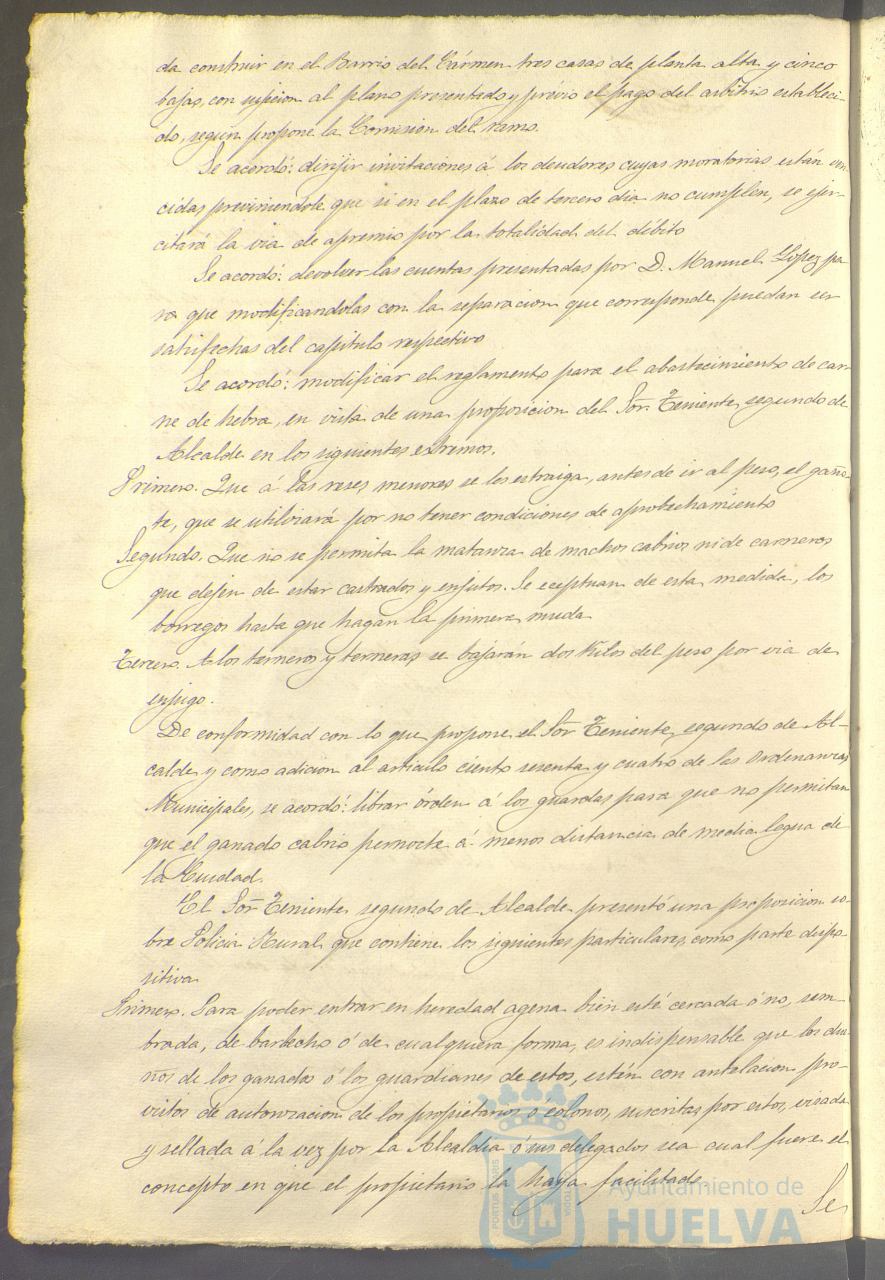 da construir en el Barrio del Cármen tres casas de planta alta y cinco
bajas, con sujecion al plano presentado y prévio el pago del arbitrio estableci-
do, según propone la Comision del ramo.
Se acordó: dirijir invitaciones á los deudores cuyas moratorias están ven-
cidas previniendole que si en el plazo de tercero dia no cumplen, se ejer-
citará la via de apremio por la totalidad del débito
Se acordó: devolver las cuentas presentadas por D. Manuel Lopez pa-
ra que modificandolas con la separacion que corresponde, puedan ser
satisfechas del capitulo respectivo
Se acordó: modificar el reglamento para el abastecimiento de car-
ne de hebra, en vista de una proposicion del Sor. Teniente segundo de
Alcalde en los siguientes extremos.
Primero. Que á las reses menores se les estraiga, antes de ir al peso, el gaño-
te, que se utilizará por no tener condiciones de aprovechamiento
Segundo. Que no se permita la matanza de machos cabrios ni de carneros
que dejen de estar castrados y enjutos. Se eceptuan de esta medida, los
borregos hasta que hagan la primera muda
Tercero. A los terneros y terneras se bajarán dos Kilos del peso por via de
enjugo.
De conformidad con lo que propone el Sor Teniente segundo de Al-
calde y como adicion al articulo ciento sesenta y cuatro de las Ordenanzas
Municipales, se acordó: librar órden á los guardas para que no permitan
que el ganado cabrio pernocte á menos distancia de media legua de
la Ciudad.
El Sor Teniente segundo de Alcalde presentó una proposicion so-
bre Policia Rural que contiene los siguientes particulares, como parte dispo-
sitiva
Primero. Para poder entrar en heredad agena bien esté cercada ó no, sem-
brada, de barbecho ó de cualquiera forma, es indispensable que los due-
ños de los ganados ó los guardianes de estos, estén con antelacion pro-
vistos de autorizacion de los propietarios ó colonos, suscritas por estos, visada
y sellada á la vez por la Alcaldia ó sus delegados sea cual fuere el
concepto en que el propietario la haya facilitado
Se
PORTUS MARIS
Ayuntamiento de
HUELVA